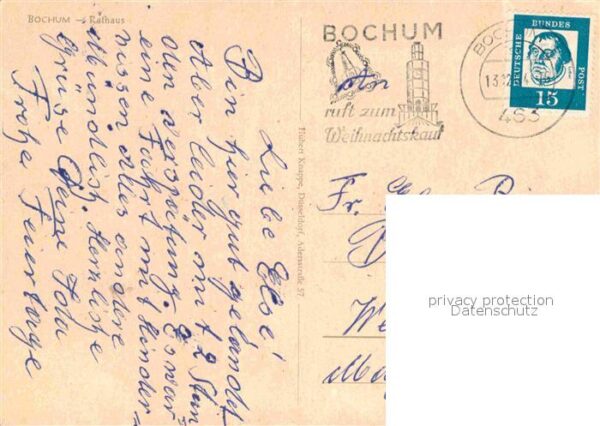 BOCHUM — Rathaus
Liebe Else!
Bin hier gut gelandet
Aber leider mit 2 Stun
den Verspätung. Es war
eine Fahrt mit Hinder-
nissen. Alles andere
Mündlich. Herzliche
Grüsse Deine
Frohe Feiertage
Hubert Knappe, Düsseldorf, Adersstraße 57
BOCHUM
ruft zum
Weihnachtskauf
BOCHUM
13.12.
463
DEUTSCHE BUNDES POST
15
An
Fr.
privacy protection
Datenschutz